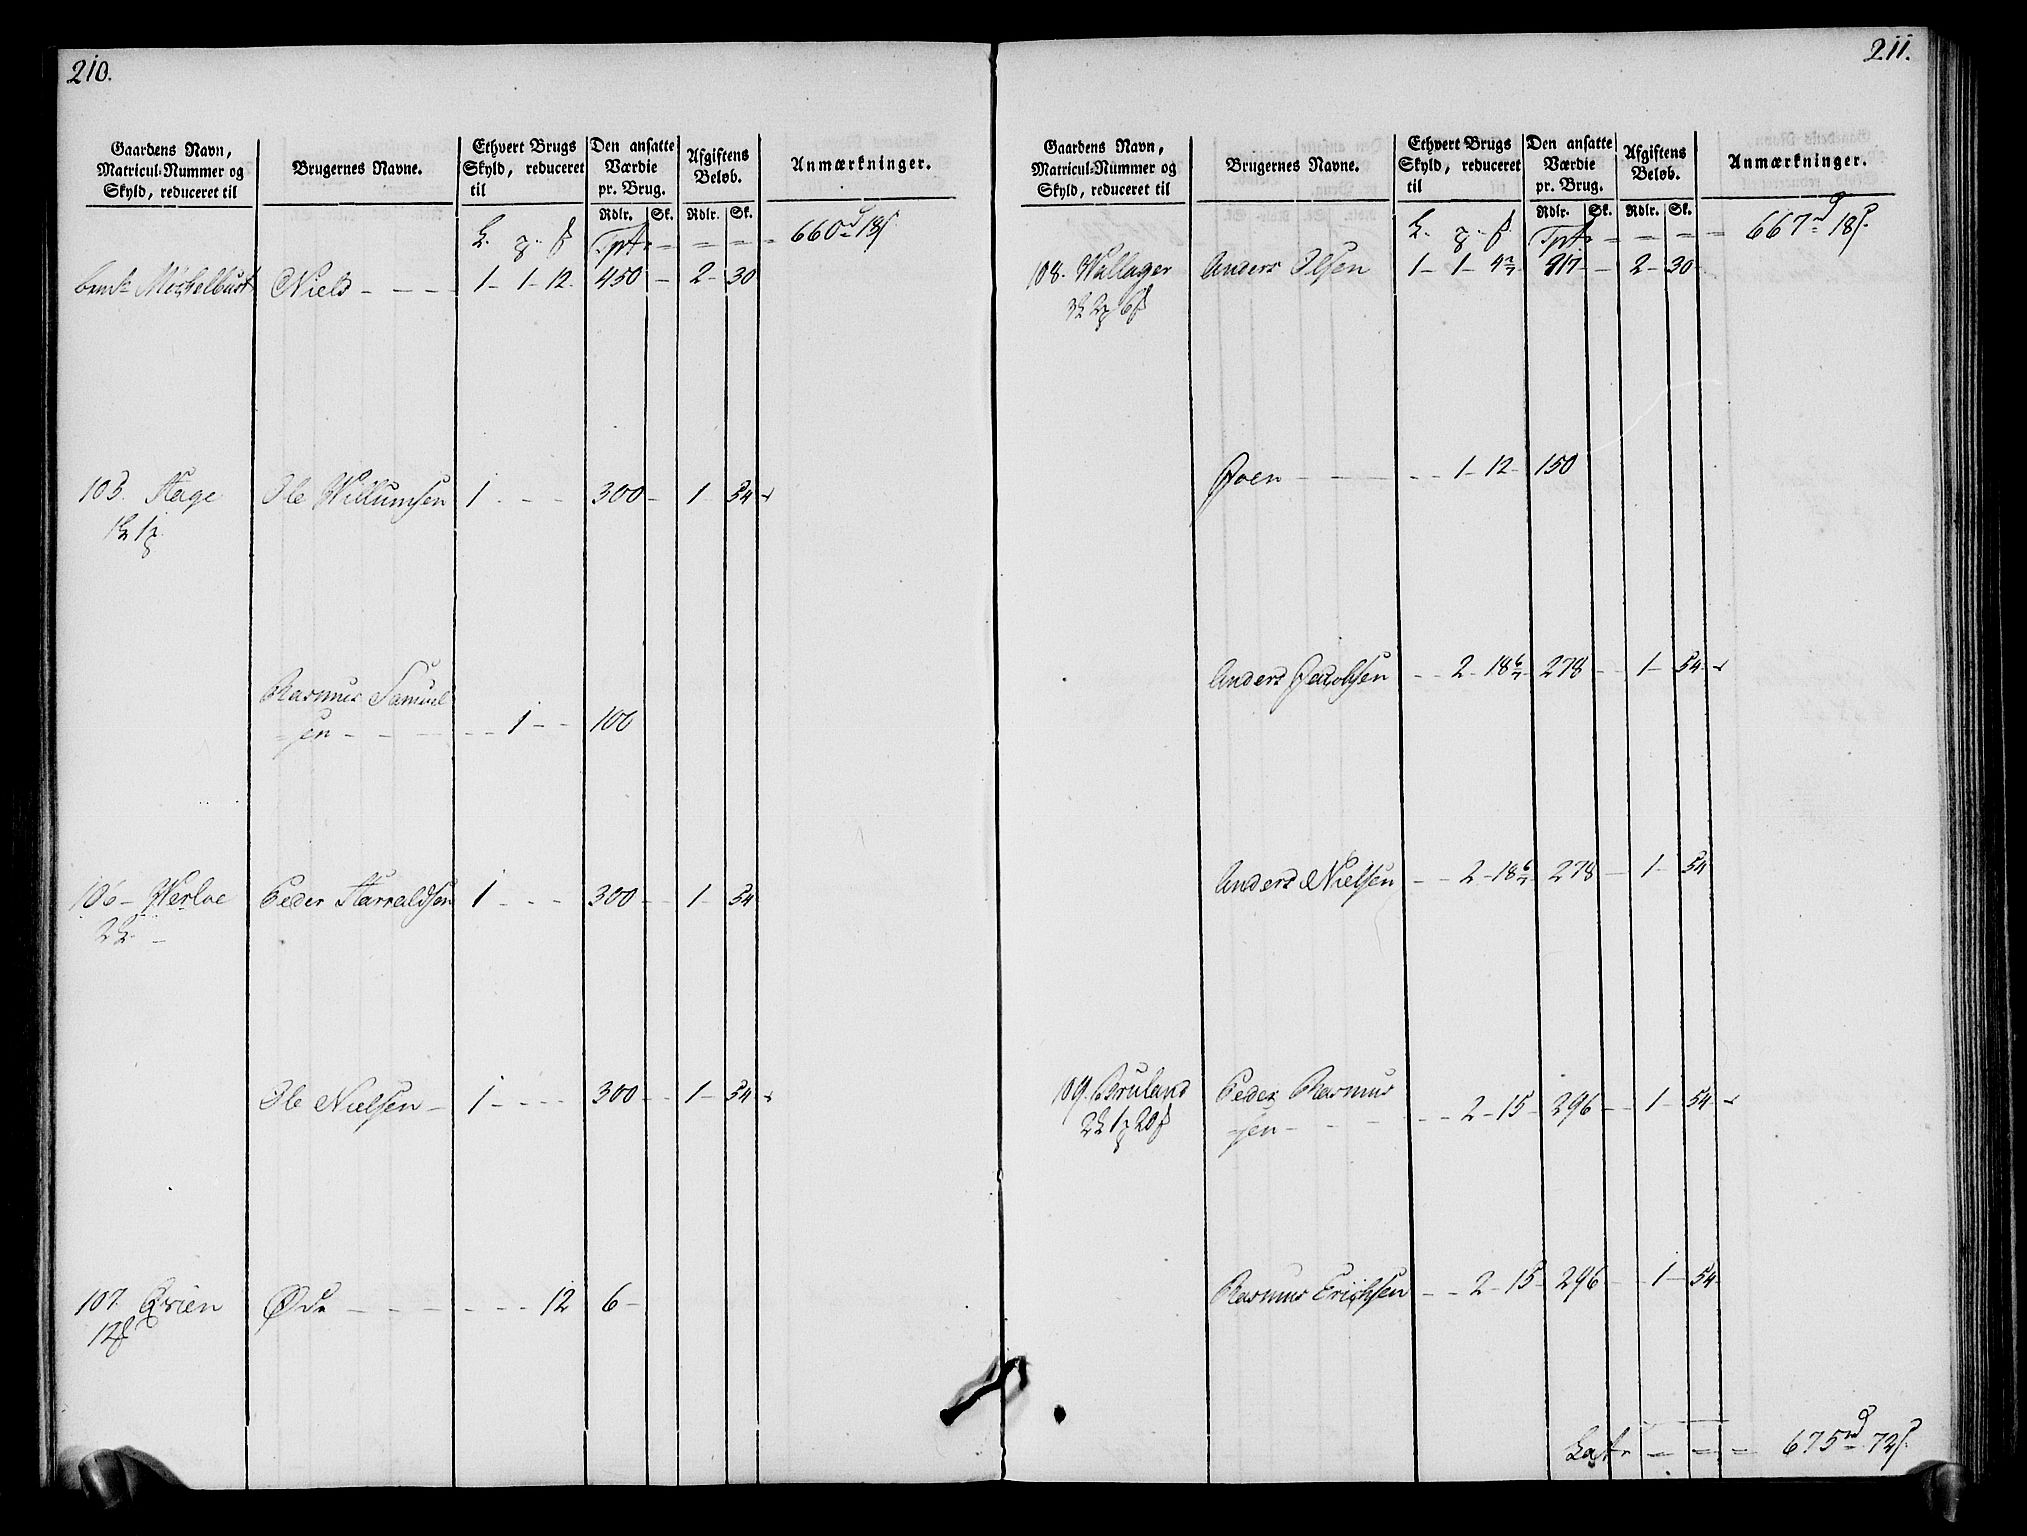 210.
Gaardens Navn, Matricul-Nummer og Skyld, reduceret til
Brugernes Navne.
Ethvert Brugs Skyld, reduceret til
Den ansatte Værdie pr. Brug.
Afgiftens Beløb.
Anmærkninger.
Rdlr. Sk. Rdlr. Sk.
Tpt. = = = = 660 rd 18 s.
Niels - - - 1 - 1 - 12. 450 - 2 - 30
105. Hage Ole Willumsen 1 - - - 300 - 1 - 54
Rasmus Samuel
sen - - - - - - 1 - - 100
106 - Werloe Peder Harraldsen 1 - - - 300 - - 1 - 54
Ole Nielsen - 1 - - - 300 - - 1 - 54
107. Qvien Øde - - - - - - 12 6 -
211.
Gaardens Navn, Matricul-Nummer og Skyld, reduceret til
Brugernes Navne.
Ethvert Brugs Skyld, reduceret til
Den ansatte Værdie pr. Brug.
Afgiftens Beløb.
Anmærkninger.
Rdlr. Sk. Rdlr. Sk.
Tpt. = = = = 667 rd 18 s.
108. Wallager Anders Olsen 1 - 1 - 4 2/7 417 - - 2 - 30
- - - - - 1 - 12 - 150
Anders Jacobsen - - 2 - 18 6/7 278 - - 1 - 54
Anders Nielsen - - 2 - 18 6/7 278 - - 1 - 54
109. Bruland Peder Rasmus
sen - - - - - 2 - 15 - 296 - - 1 - 54
Rasmus Erichsen - - 2 - 15 - 296 - - 1 - 54
Lat. - - - - 675 rd 72 s.